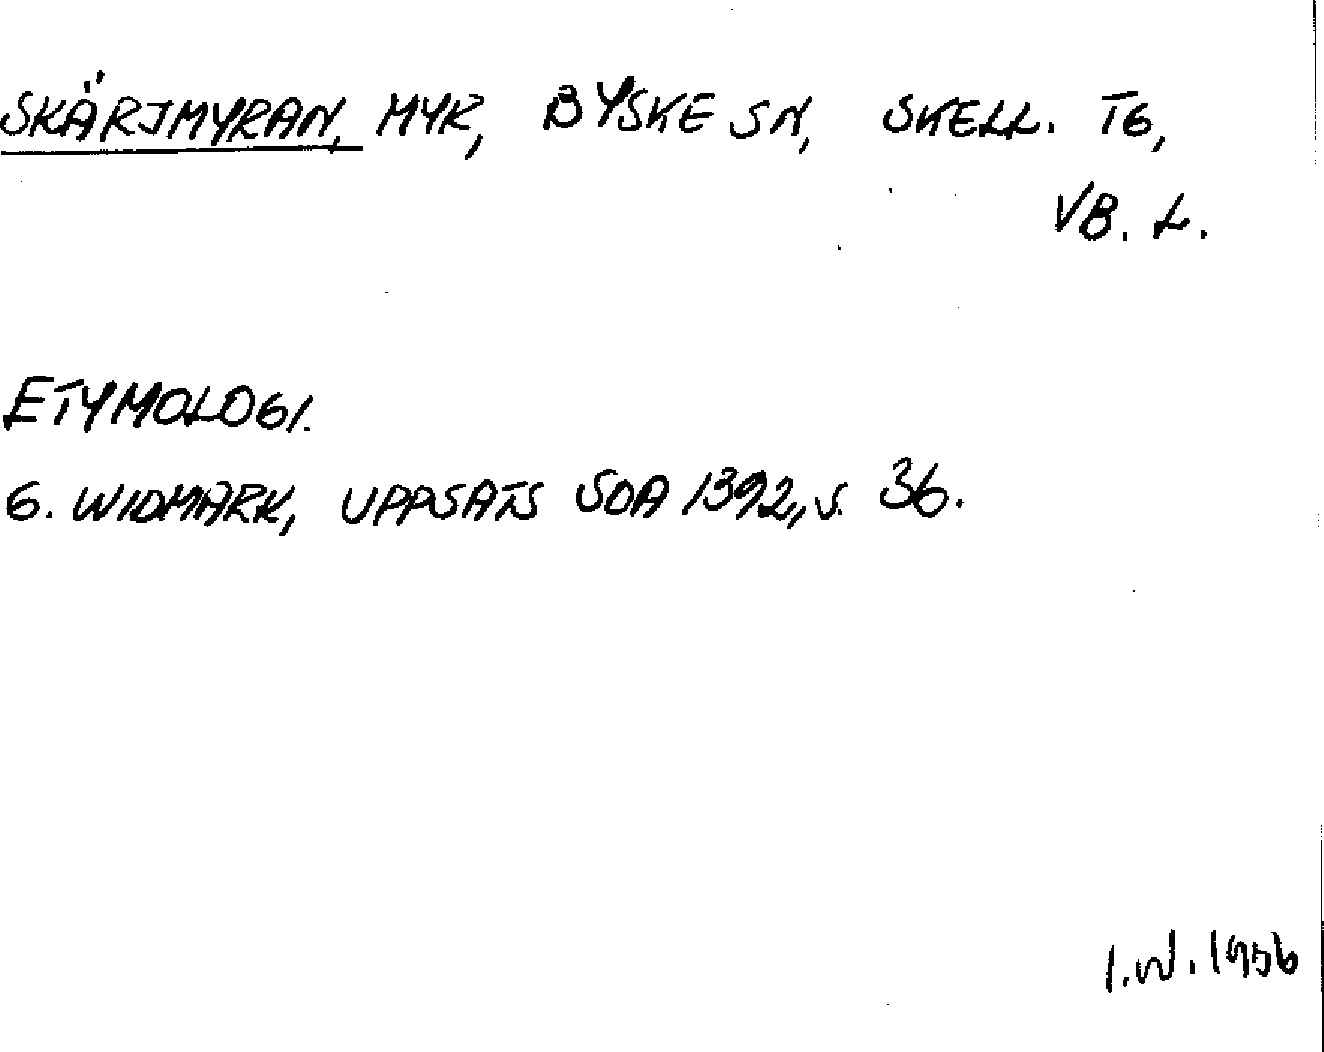 SKÄRJMYRAN, MYR, BYSKE SN, SKELL. TG,
VB. L.
ETYMOLOGI.
G. WIDMARK, UPPSATS SOA 1392, S. 36.
I.W. 1956